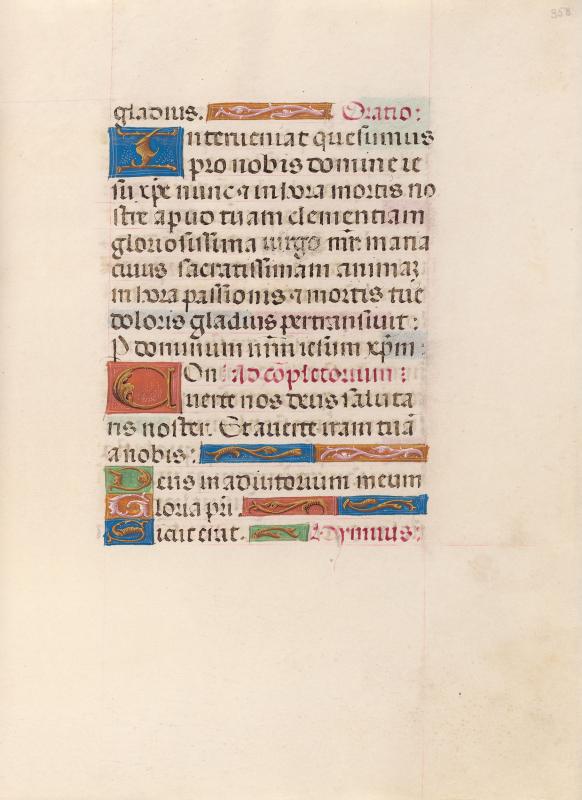 358
gladius. Oratio:
Interueniat quesumus
pro nobis domine ie
su xpe nunc ⁊ in hora mortis no
stre apud tuam clementiam
gloriosissima uirgo mr̄ maria
cuius sacratissimam animaȝ
in hora passionis ⁊ mortis tue
doloris gladius pertransiuit:
P dominum nr̄m iesum xp̄m:
COn: Ad cōpletorium:
uerte nos deus saluta
ris noster. Et auerte iram tuā
a nobis:
Deus in adiutorium meum
Gloria pri.
Sicut erat. Hymnus: